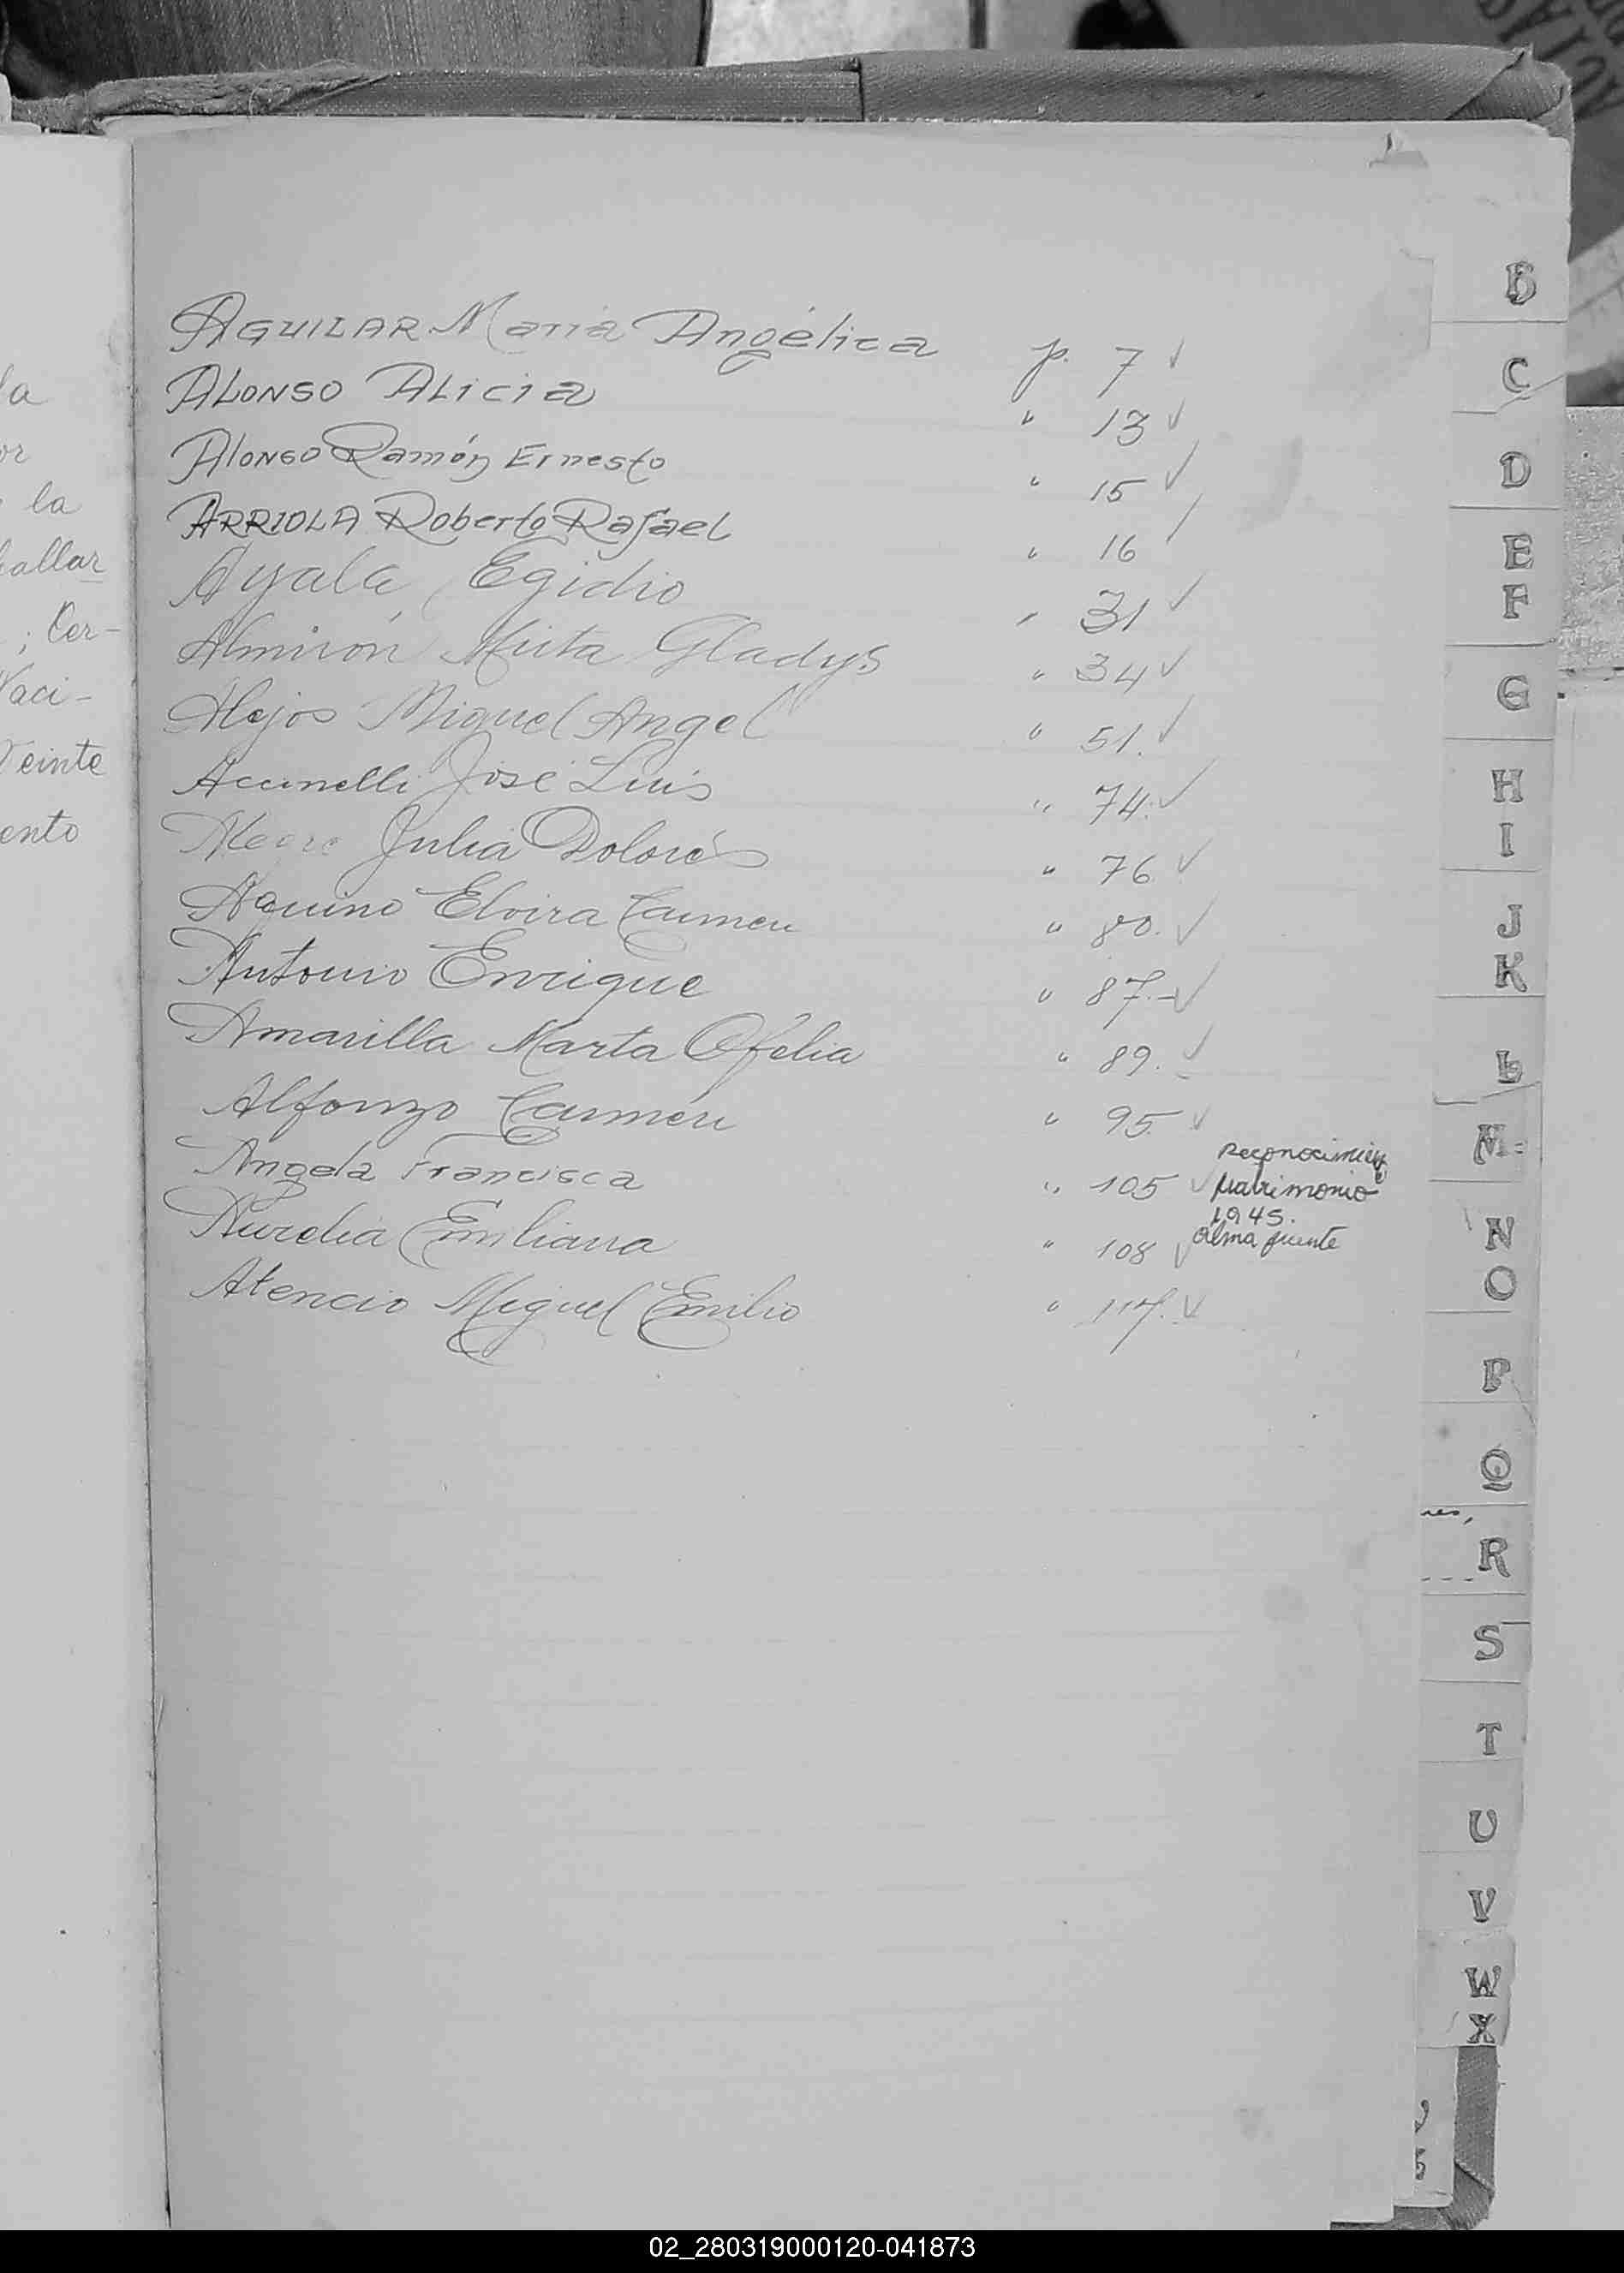 AGUILAR Maria Angélica p. 7 ✓
ALONSO ALicia " 13 ✓
AlONSO Ramón Ernesto " 15 ✓
ARRIOLA Roberto Rafael " 16 /
Ayala, Egidio " 31 ✓
Almirón Mirta Gladys " 34 ✓
Alejos Miguel Angel " 51. ✓
Accinelli José Luis " 74. ✓
Alegre Julia Dolores " 76 ✓
Aquino Elvira Carmen " 80. ✓
Antonio Enrique " 87.- ✓
Amarilla Marta Ofelia " 89. ✓
Alfonzo Carmen " 95. ✓
Angela Francisca " 105 ✓
Aurelia Emiliana " 108 ✓
Atencio Miguel Emilio " 117. ✓
matrimonio
1945.
alma fuente
la
or
la
allar
; Cer-
Naci-
Veinte
ento
B
C
D
E
F
G
H
I
J
K
L
M
N
O
P
Q
R
S
T
U
V
W
X
02_280319000120-041873